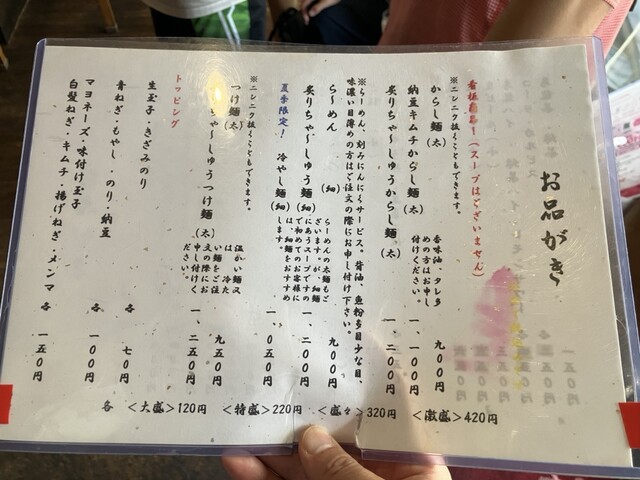 お品がき
看板商品！（スープはございません）
※ニンニク抜くこともできます。
からし麺（太） 九〇〇円
香味油、タレ多
めの方はお申し
付けください。
納豆キムチからし麺（太） 一、一〇〇円
炙りちゃ〜しゅうからし麺（太） 一、二〇〇円
※らーめん、刻みにんにくサービス。背油、魚粉多目少な目、
味濃い目薄めの方はご注文の際にお申し付け下さい。
らーめん（細） 九〇〇円
らーめんの太麺もご
ざいます。が、細麺
にあうスープですの
で初めてのお客様に
は、細麺をおすすめ
します。
炙りちゃ〜しゅう麺（細） 一、二〇〇円
夏季限定！ 冷やし麺（細） 一、〇五〇円
※ニンニク抜くこともできます。
つけ麺（太） 九五〇円
温かい麺又
は、冷た
い麺をご注
文の際にお
申し付けく
ださい。
ちゃ〜しゅうつけ麺（太） 一、二五〇円
トッピング
生玉子・きざみのり 各 七〇円
青ねぎ・もやし・のり・納豆 各 一〇〇円
マヨネーズ・味付け玉子
白髪ねぎ・キムチ・揚げねぎ・メンマ 各 一五〇円
各 <大盛>120円 <特盛>220円 <盛々>320円 <激盛>420円